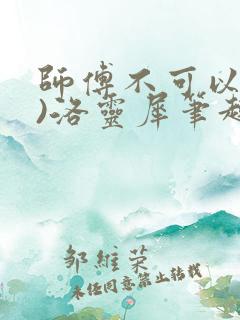 師傅不可以
)洛靈犀筆趣
鄒維榮
未經同意禁止轉載